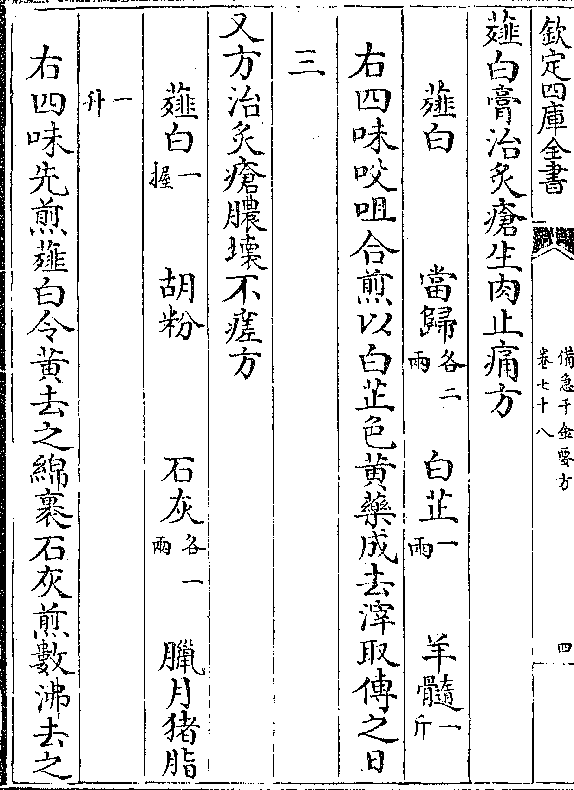 欽定四庫全書
備急千金要方
卷七十八
四
薤白膏治炙瘡生肉止痛方
薤白 當歸各二兩 白芷一兩 羊髓一斤
右四味㕮咀合煎以白芷色黄藥成去滓取傅之日
三
又方治炙瘡膿壊不瘥方
薤白一握 胡粉 石灰各一兩 臘月猪脂
一升
右四味先煎薤白令黄去之綿裹石灰煎數沸去之